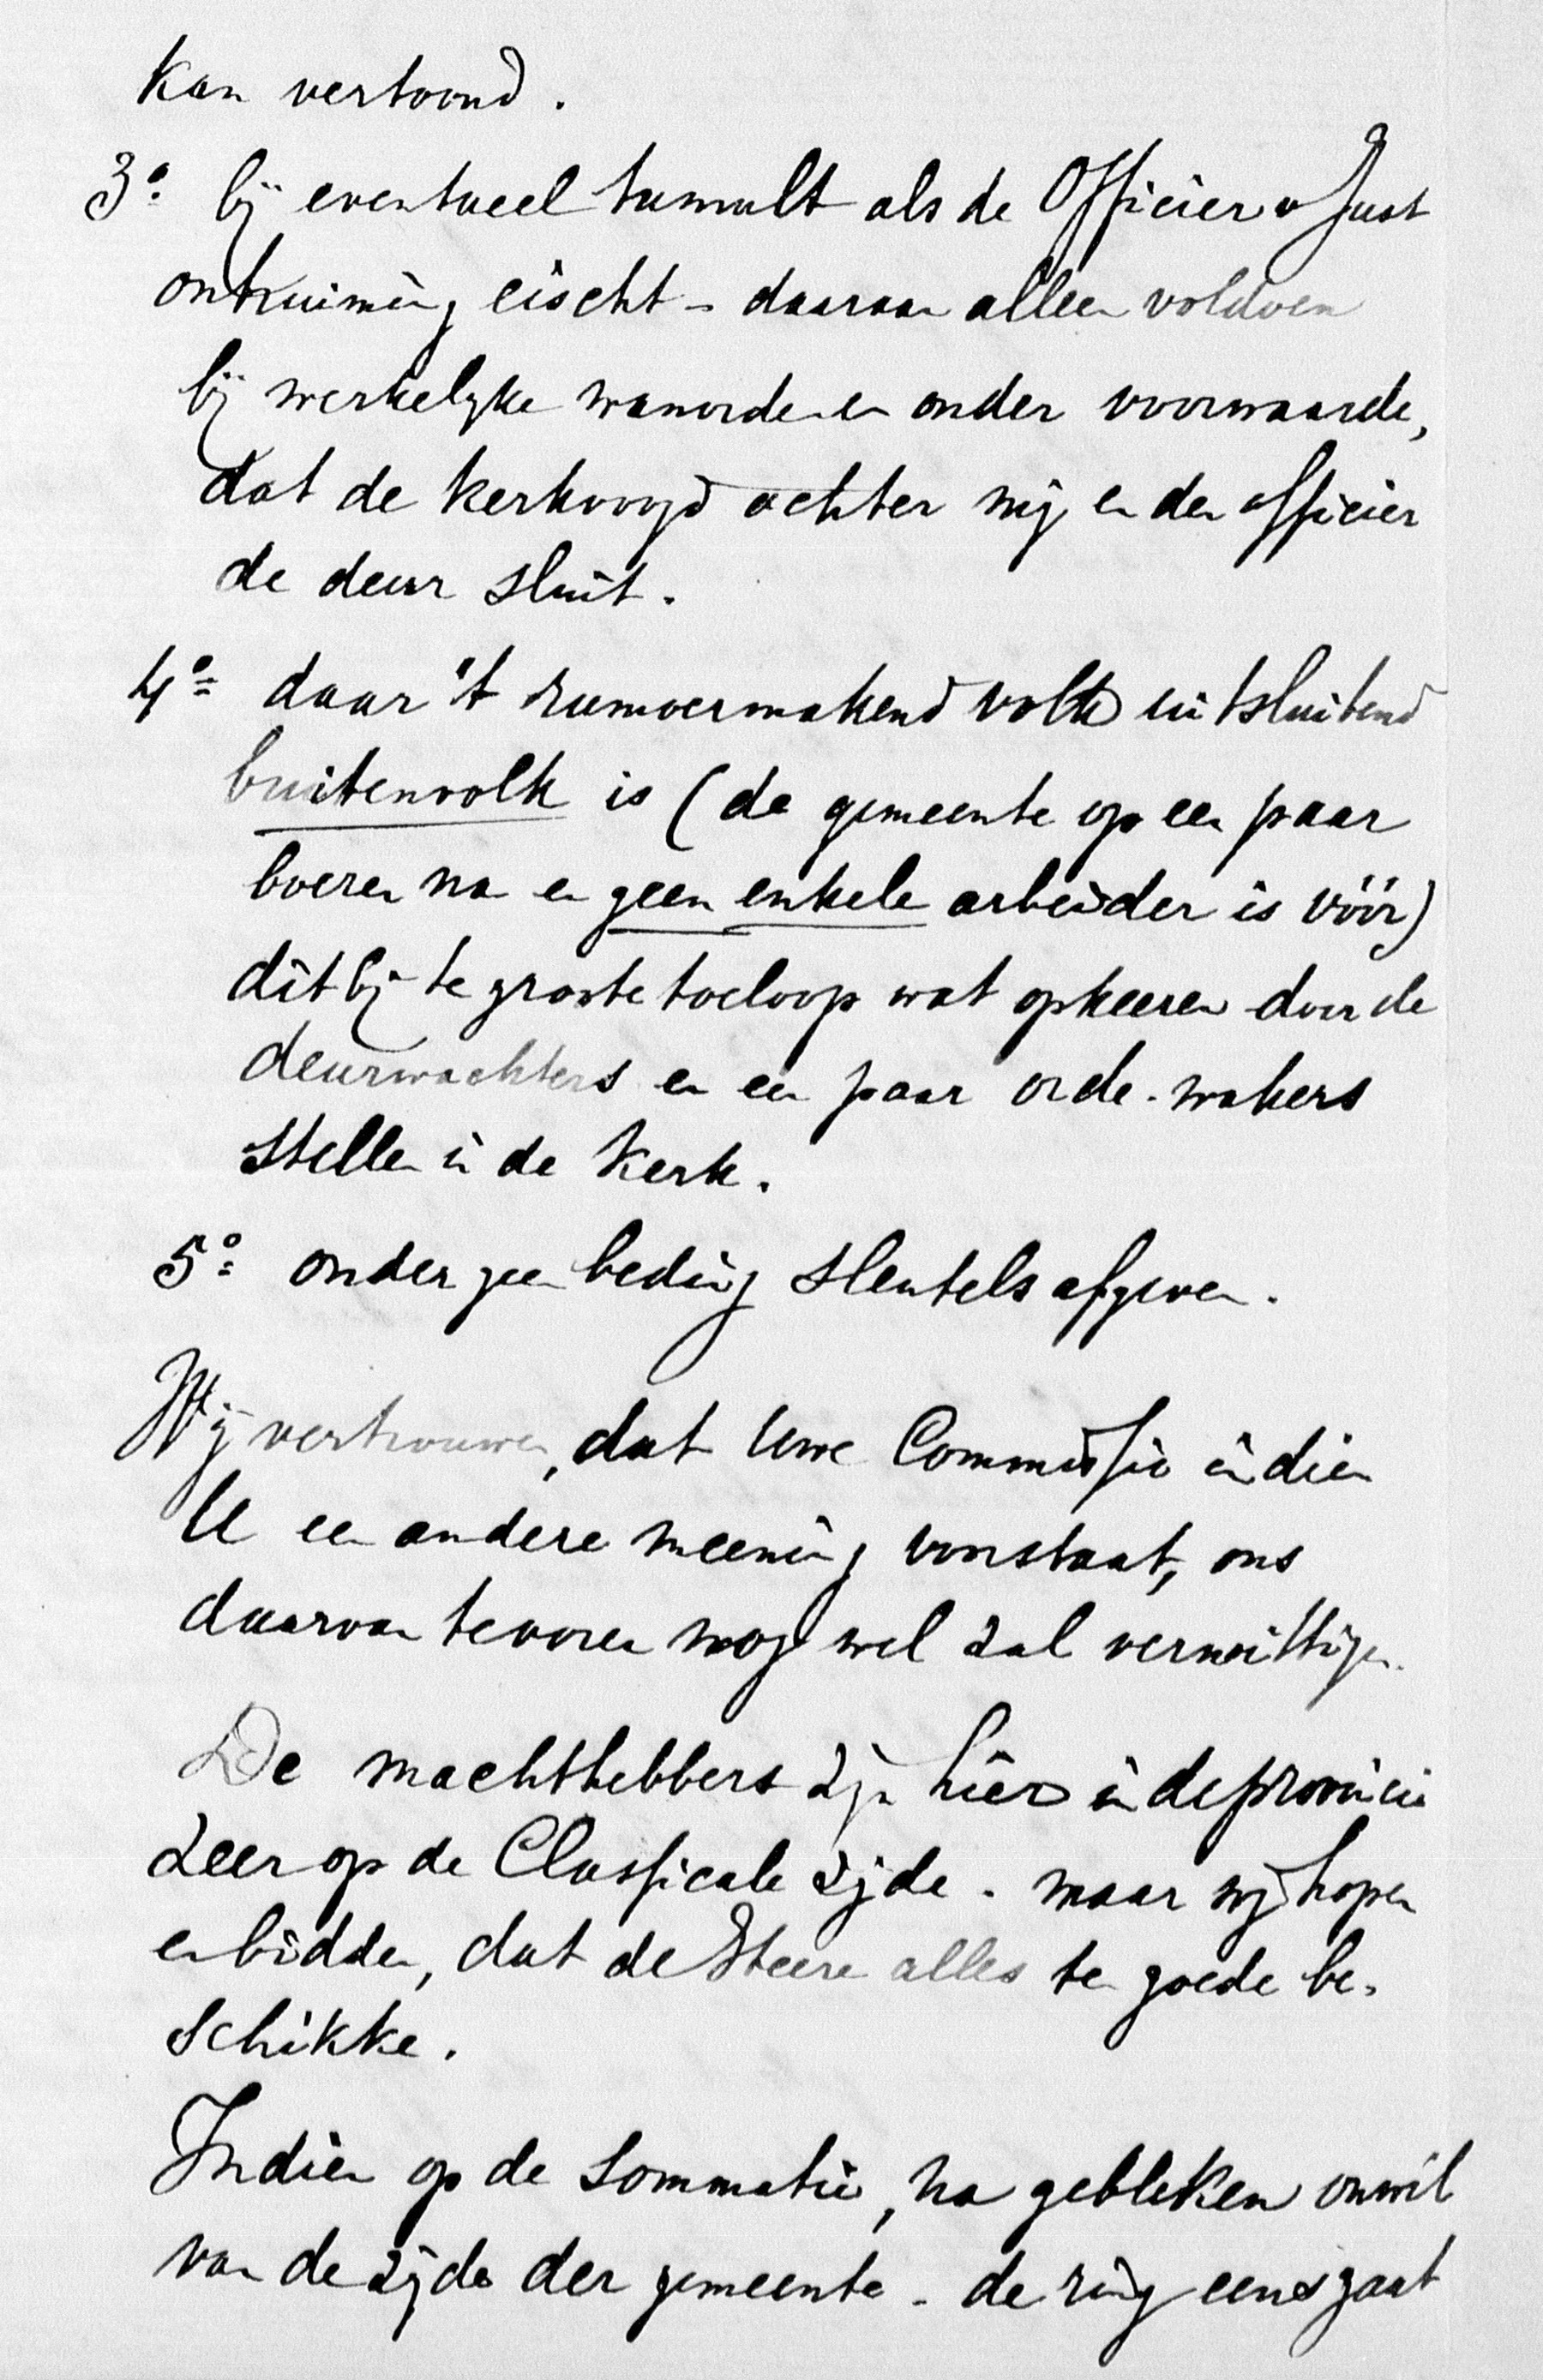 kan vertoond.
3o. bij eventueel tumult als de Officier v Just
ontruiming eischt - daaraan alleen voldoen
bij werkelyke wanorde en onder voorwaarde,
dat de kerkvoogd achter mij en den officier
de deur sluit.
4o= daar 't rumoermakend volk uitsluitend
buitenvolk is (de gemeente op een paar
boeren na en geen enkele arbeider is vóór)
dit bij te groote toeloop wat opkeeren door de
deurwachters en een paar orde-wakers
stellen in de Kerk.
5o= onder geen beding sleutels afgeven.
Wij vertrouwen, dat Uwe Commissie indien
U een andere meening voorstaat, ons
daarvan tevoren nog wel zal verwittigen.
De machthebbers zijn hier in de provincie
zeer op de Classicale zijde - maar wij hopen
en bidden, dat de Heere alles ten goede be-
schikke.
Indien op de sommatie, na gebleken onwil
van de zijde der gemeente - de ring eens gaat